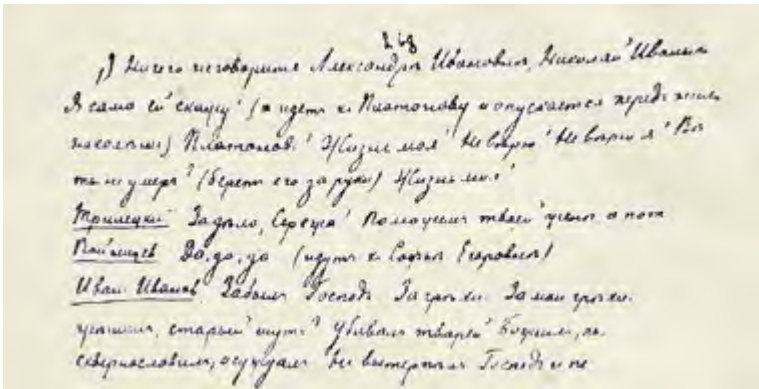 268
Ничего не говорите Александрѣ Ивановнѣ, Николай Иваныч
Я сама ей скажу! (идетъ къ Платонову и опускается передъ нимъ
на колѣни) Платоновъ! Жизнь моя! Не вѣрю! Не вѣрю я!
ты не умеръ? (беретъ его за руку) Жизнь моя!
Трилецкий За дѣло, Сережа! Поможемъ твоей женѣ а пот
Да, да, да (идутъ къ Софьѣ Егоровнѣ)
Иван Иванов Забылъ Господь За грѣхи За мои грѣхи
старый шутъ? Убивалъ тварей Божiихъ,
сквернословилъ, осуждалъ Не вытерпѣлъ Господь и по